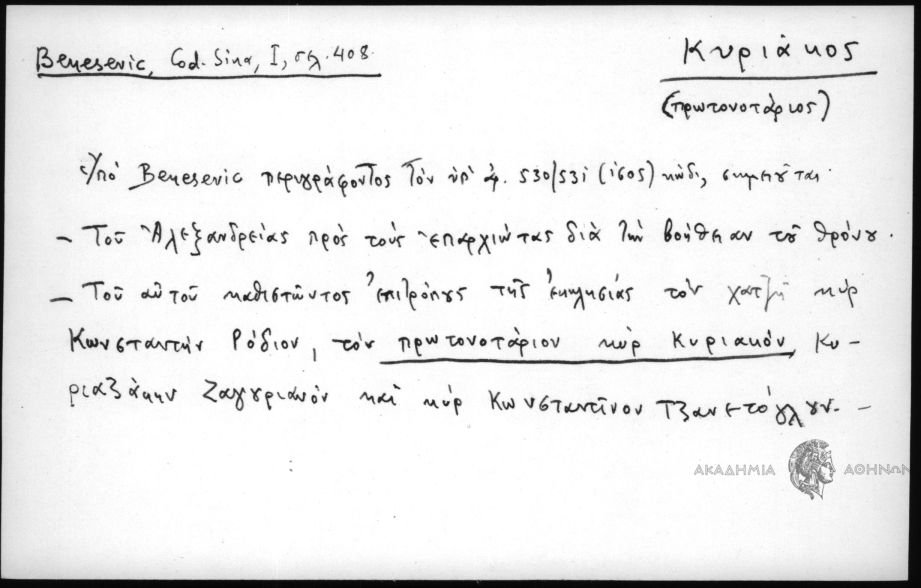 Benesevic, Cod. Sina, I, σελ. 408.
Κυριάκος
(πρωτονοτάριος)
Ὑπό Benesevic περιγράφοντος τόν ὑπ' ἀρ. 530/531 (ἴσος) κώδ., σημειοῦται
– Τοῦ Ἀλεξανδρείας πρός τούς ἐπαρχιώτας διά τήν βοήθειαν τοῦ θρόνου.
– Τοῦ αὐτοῦ καθιστῶντος ἐπιτρόπους τῆς ἐκκλησίας τόν χατζῆ κύρ
Κωνσταντήν Ρόδιον, τόν πρωτονοτάριον κύρ Κυριακόν, Κυ-
ριαζάκην Ζαγυριανόν καί κύρ Κωνσταντῖνον Τζανετόγλουν. –
ΑΚΑΔΗΜΙΑ ΑΘΗΝΩΝ